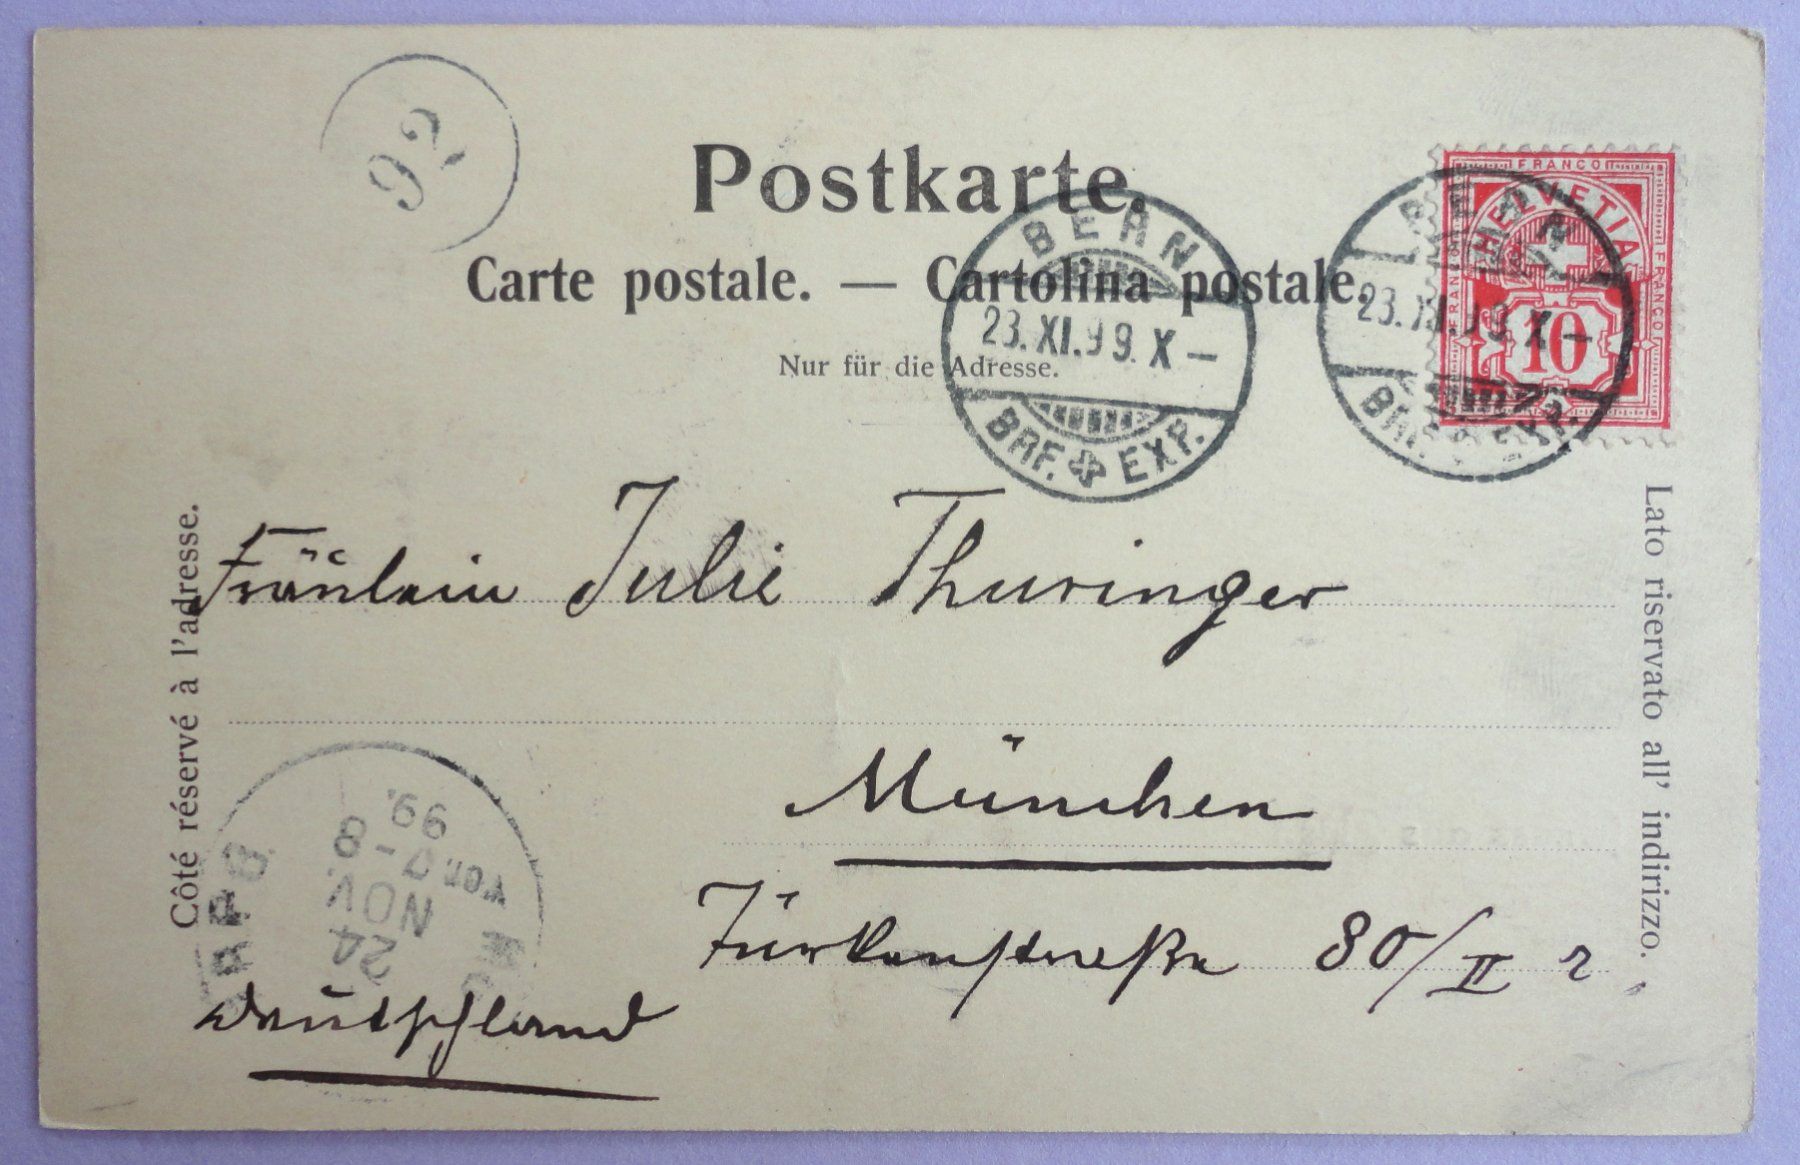 92
Postkarte.
Carte postale. — Cartolina postale.
Nur für die Adresse.
BERN
23.XI.99.X—
BRF. EXP.
BERN
23.XI.99.X—
BRF. EXP.
FRANCO
HELVETIA
FRANCO
FRANCO
10
Côté réservé à l'adresse.
Lato riservato all' indirizzo.
Fräulein Julie Thuringer
München
Türkenstraße 80/II r
Deutschland
24
NOV.
VOR. 7-8
99.